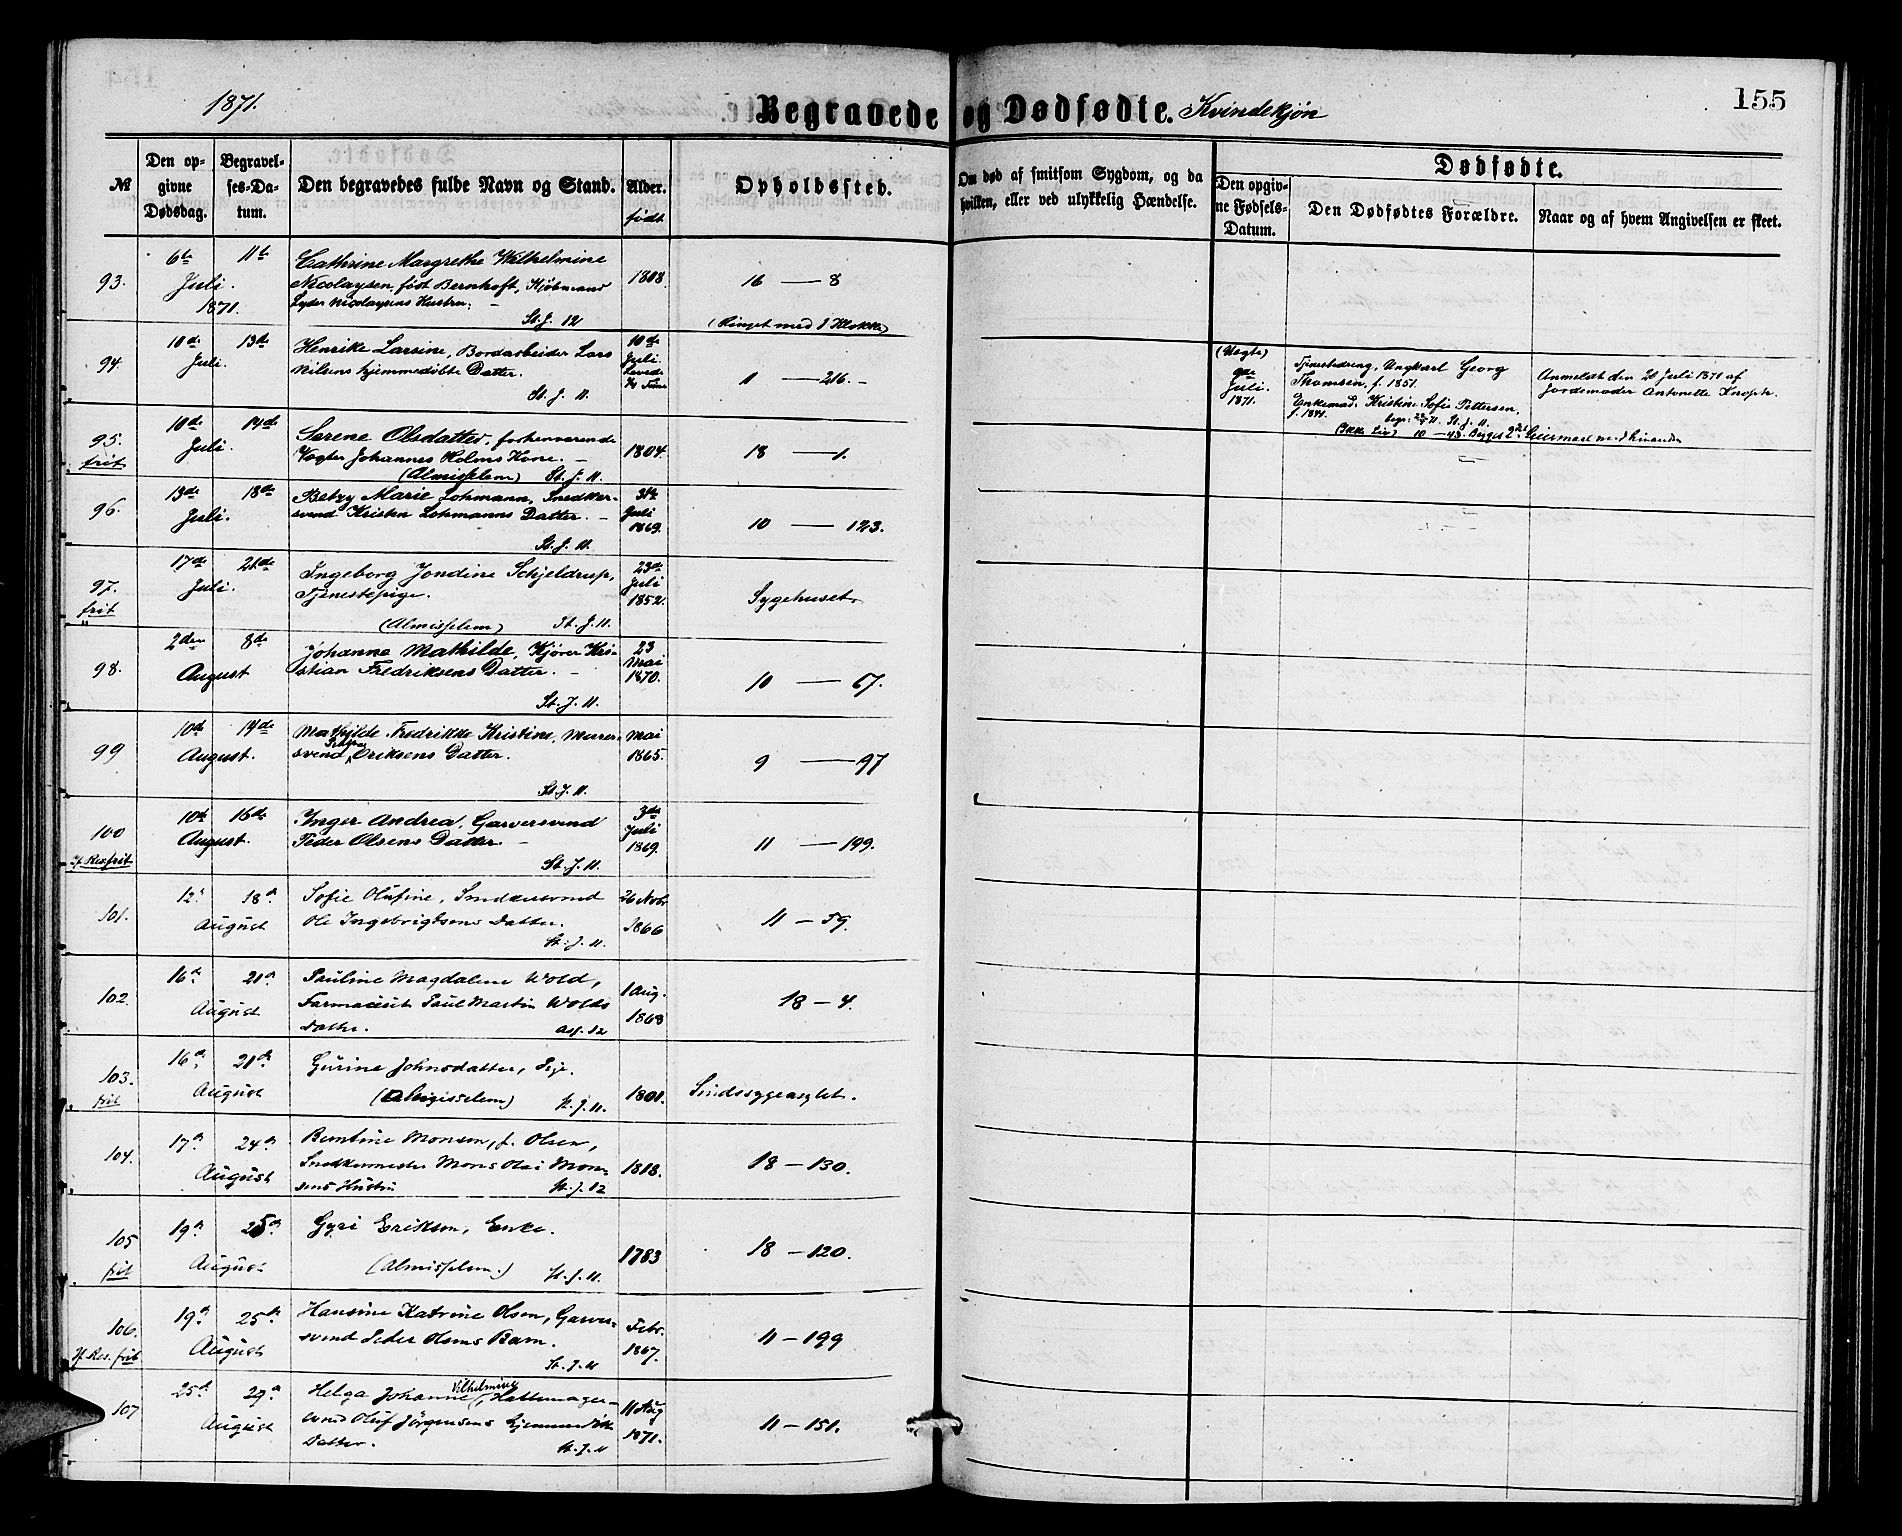 1871.
Begravede og Dødfødte. Kvindekjøn
155
№
Den op-
givne
Dødsdag.
Begravel-
ses-Da-
tum.
Den begravedes fulde Navn og Stand.
Alder.
født
Opholdssted.
Om død af smitsom Sygdom, og da
hvilken, eller ved ulykkelig Hændelse.
Dødfødte.
Den opgiv-
ne Fødsels-
Datum.
Den Dødfødtes Forældre.
Naar og af hvem Angivelsen er skeet.
93.
6te 11te
Juli.
1871.
Cathrine Margrethe Wilhelmine
Nicolaysen, født Bernhoft, Kjøbmand
Lyder Nicolaysens Hustru. -
St. J. 12
1808.
16 — 8
(Ringet med 1 Klokke)
94.
10de 13de
Juli.
Henrike Larsine, Bordarbeider Lars
Nilsens hjemmedøbte Datter.
St. J. 11.
10de
Juli.
Levede
½ Time
11 — 216. -
(Uægte)
9de
Juli.
1871.
Tjenestedreng, Ungkarl Georg
Thomsen, f. 1851.
Enkemad. Kristine Sofie Pettersen,
f. 1841.
St. J. 11.
(Ikke Liv) 10 — 43.
Leiermaal med hinanden
Anmeldt den 20 Juli 1871 af
Jordemoder Antonette Knoph.
95.
frit
10de 14de
Juli.
Serene Olsdatter, forhenværende
Vægter Johannes Holms Kone. -
(Almisselem) St. J. 11.
1804.
18 — 1.
96.
13de 18de
Juli.
Betzy Marie Lohmann, Snedker-
svend Kristen Lohmanns Datter. -
St. J. 11.
31te
Juli
1869.
10 — 123.
97.
frit
17de 21de
Juli.
Ingeborg Jondine Schjeldrup,
Tjenestepige.
(Almisselem) St. J. 11.
23de
Juli
1852.
Sygehuset.
98.
2den 8de
August
Johanne Mathilde, Kjører Kri-
stian Fredriksens Datter. -
St. J. 11.
23
Mai
1870.
10 — 67.
99
10de 14de
August.
Mathilde Fredrikke Kristine, Murer-
svend Eriksens Datter.
St. J. 11.
Mai
1865.
9 — 97
100
If. Res. frit
10de 15de
August.
Inger Andrea, Garversvend
Peder Olsens Datter. -
St. J. 11.
3de
Juli
1869.
11 — 199.
101.
12. 18de
August
Sofie Olufine, Snedkersvend
Ole Ingebrigtsens Datter.
St. J. 11.
26 Novbr
1866
11 — 59.
102
16de 21de
August
Pauline Magdalene Wold,
Farmaceut Paul Martin Wolds
Datter.
As. 12
1 Aug.
1868
18 — 4.
103.
frit
16de 21de
August
Gurine Johnsdatter, Pige.
(Almisselem) St. J. 11.
1801.
Sindssygeasylet.
104.
17de 24de
August
Bentine Monsen, f. Olsen,
Snedkermester Mons Olai Mon-
sens Hustru St. J. 12
1818.
18 — 130.
105
frit
19de 25de
August
Gyri Eriksen, Enke.
(Almisselem.) St. J. 11.
1783
18 — 120.
106.
If. Res. frit
19de 25de
August
Hansine Katrine Olsen, Garver-
svend Peder Olsens Barn.
St. J. 11
Febr.
1867.
11 — 199
107
25de 29de
August
Helga Johanne Vilhelmine, Hattemager-
svend Oluf Jörgensens hjemmedöbte
Datter.
St. J. 11
11 Aug
1871.
11 — 151.